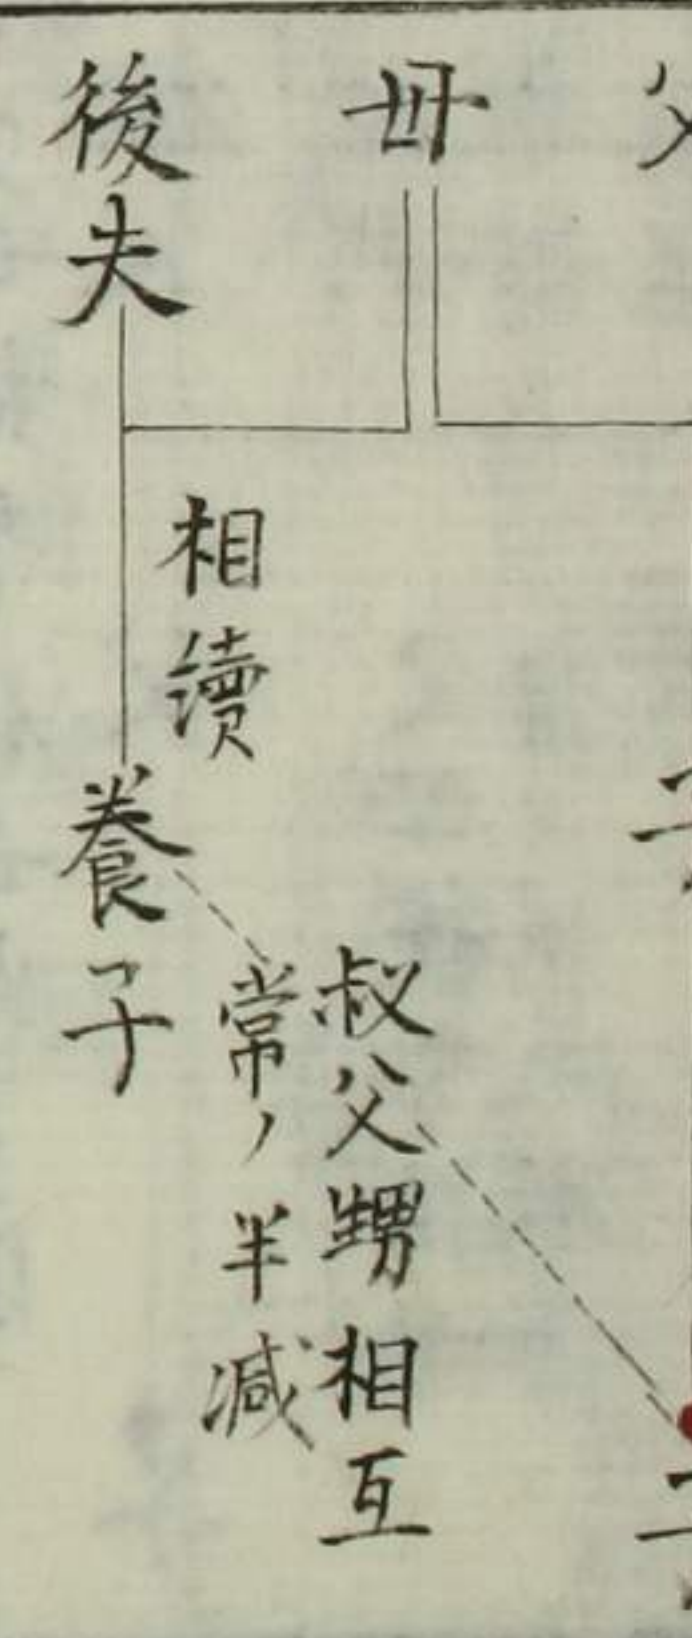 父
母
後夫
子
相続
養子
叔父甥相互
常ノ半減
子